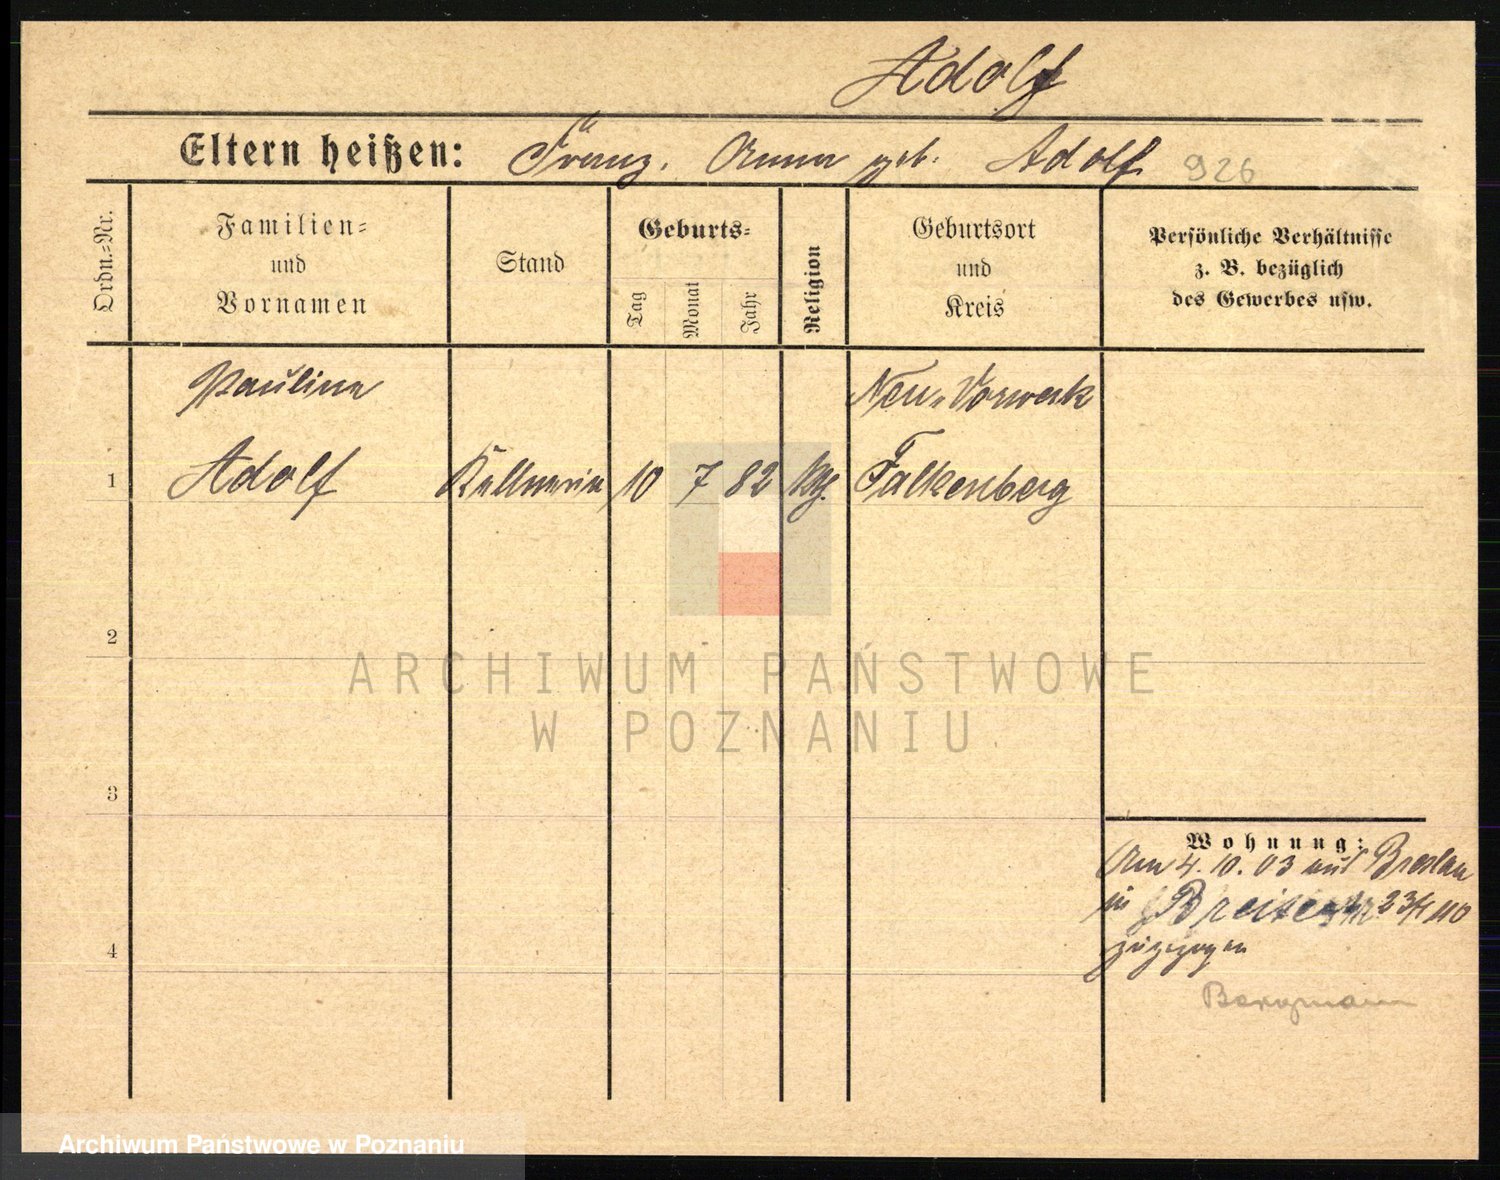 Adolf
Eltern heißen: Franz. Anna geb. Adolf 926
Ordn.=Nr.
Familien=
und
Vornamen
Stand
Geburts=
Tag
Monat
Jahr
Religion
Geburtsort
und
Kreis
Persönliche Verhältnisse
z. B. bezüglich
des Gewerbes usw.
Pauline Neu-Vorwerk
1 Adolf Kellnerin 10 7 82 Falkenberg
2
3
4
Wohnung:
Am 4.10.03 aus Breslau
in Breitestr 23/
zugezogen
Bergmann
ARCHIWUM PAŃSTWOWE
W POZNANIU
Archiwum Państwowe w Poznaniu